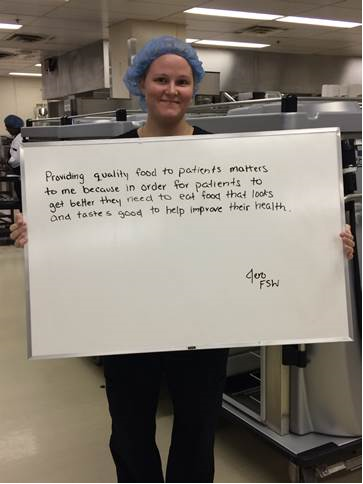 Providing quality food to patients matters
to me because in order for patients to
get better they need to eat food that looks
and tastes good to help improve their health.
Jero
FSW